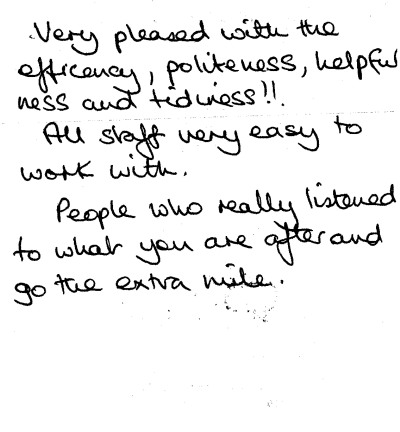 Very pleased with the
efficency, politeness, helpful
ness and tidiness!!.
All staff very easy to
work with.
People who really listened
to what you are after and
go the extra mile.